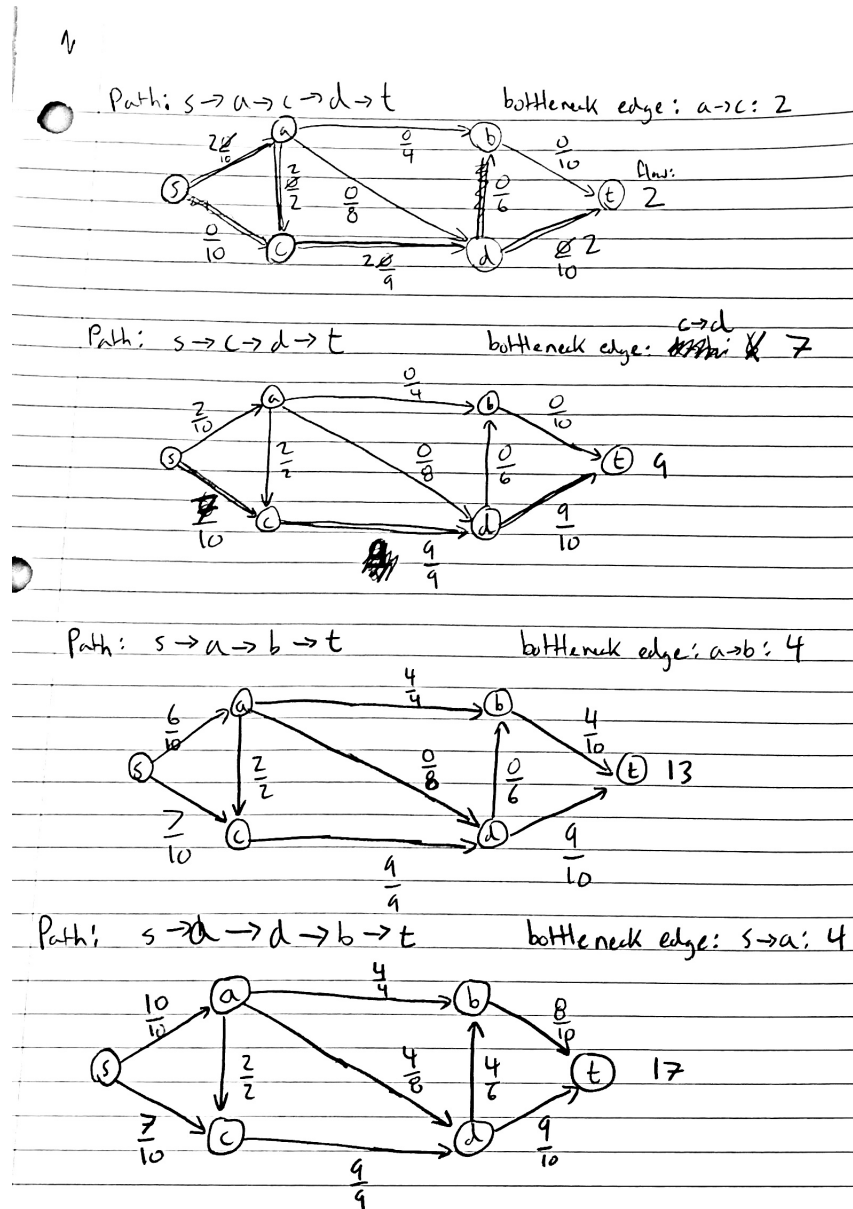 Path: s → a → c → d → t bottleneck edge: a → c: 2
a 0/4 b 0/10
s 2/10 2/2 0/8 0/6 flow: t 2
0/10 c 2/9 d 2/10
Path: s → c → d → t bottleneck edge: c → d 7
a 0/4 b 0/10
2/10 s 2/2 0/8 0/6 t 9
7/10 c 9/9 d 9/10
Path: s → a → b → t bottleneck edge: a → b: 4
6/10 a 4/4 b 4/10
s 2/2 0/8 0/6 t 13
7/10 c 9/9 d 9/10
Path: s → a → d → b → t bottleneck edge: s → a: 4
10/10 a 4/4 b 8/10
s 2/2 4/8 4/6 t 17
7/10 c 9/9 d 9/10